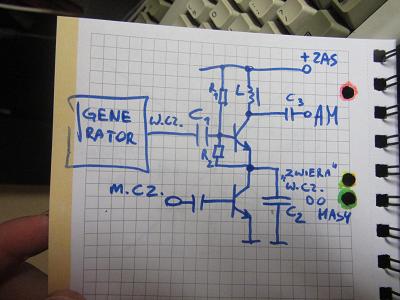 +ZAS
R1
L
C3
AM
GENE
RATOR
W.CZ.
C1
R2
M.CZ.
"ZWIERA"
W.CZ.
DO
MASY
C2